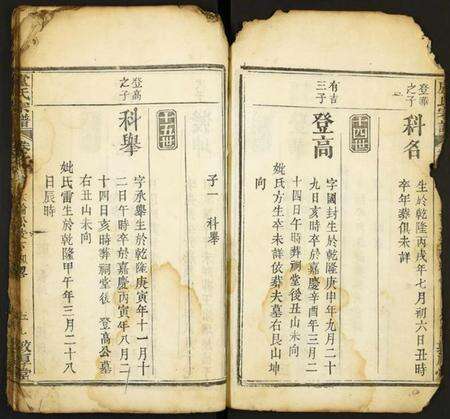 登華之子
科名
生於乾隆丙戌年七月初六日丑時
卒年葬俱未詳
十四世
有吉三子
登高
字國封生於乾隆庚申年九月二十
九日亥時卒於嘉慶辛酉年三月二
十四日午時葬祠堂後丑山未向
妣氏方生卒未詳依葬夫墓右艮山坤
向
子一 科舉
十五世
登高之子
科舉
字承舉生於乾隆庚寅年十一月十
二日午時卒於嘉慶丙寅年八月二
十四日亥時葬祠堂後 登高公墓
右丑山未向
妣氏雷生於乾隆甲午年三月二十八
日辰時
氏宗譜